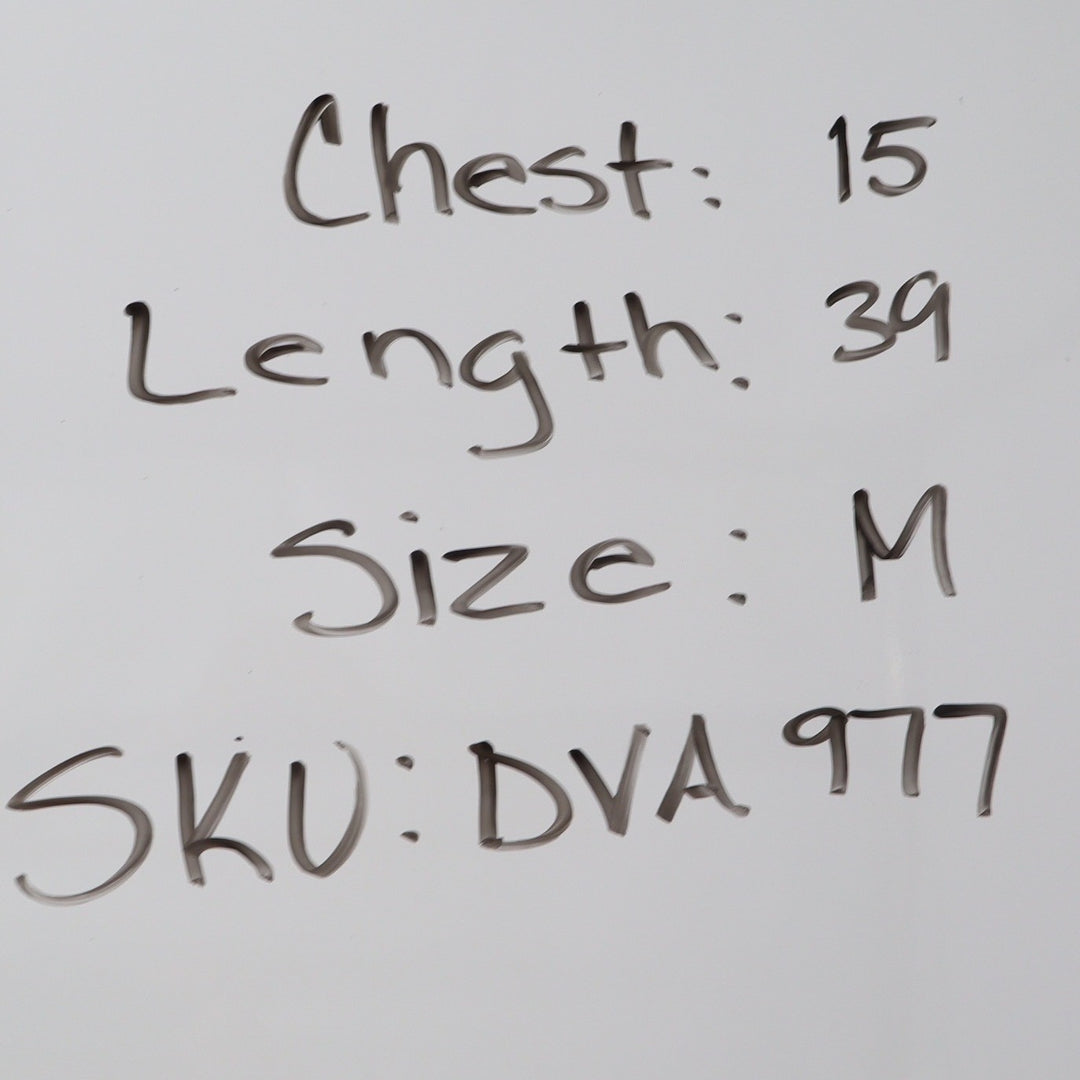 Chest: 15
Length: 39
Size: M
SKU: DVA 977